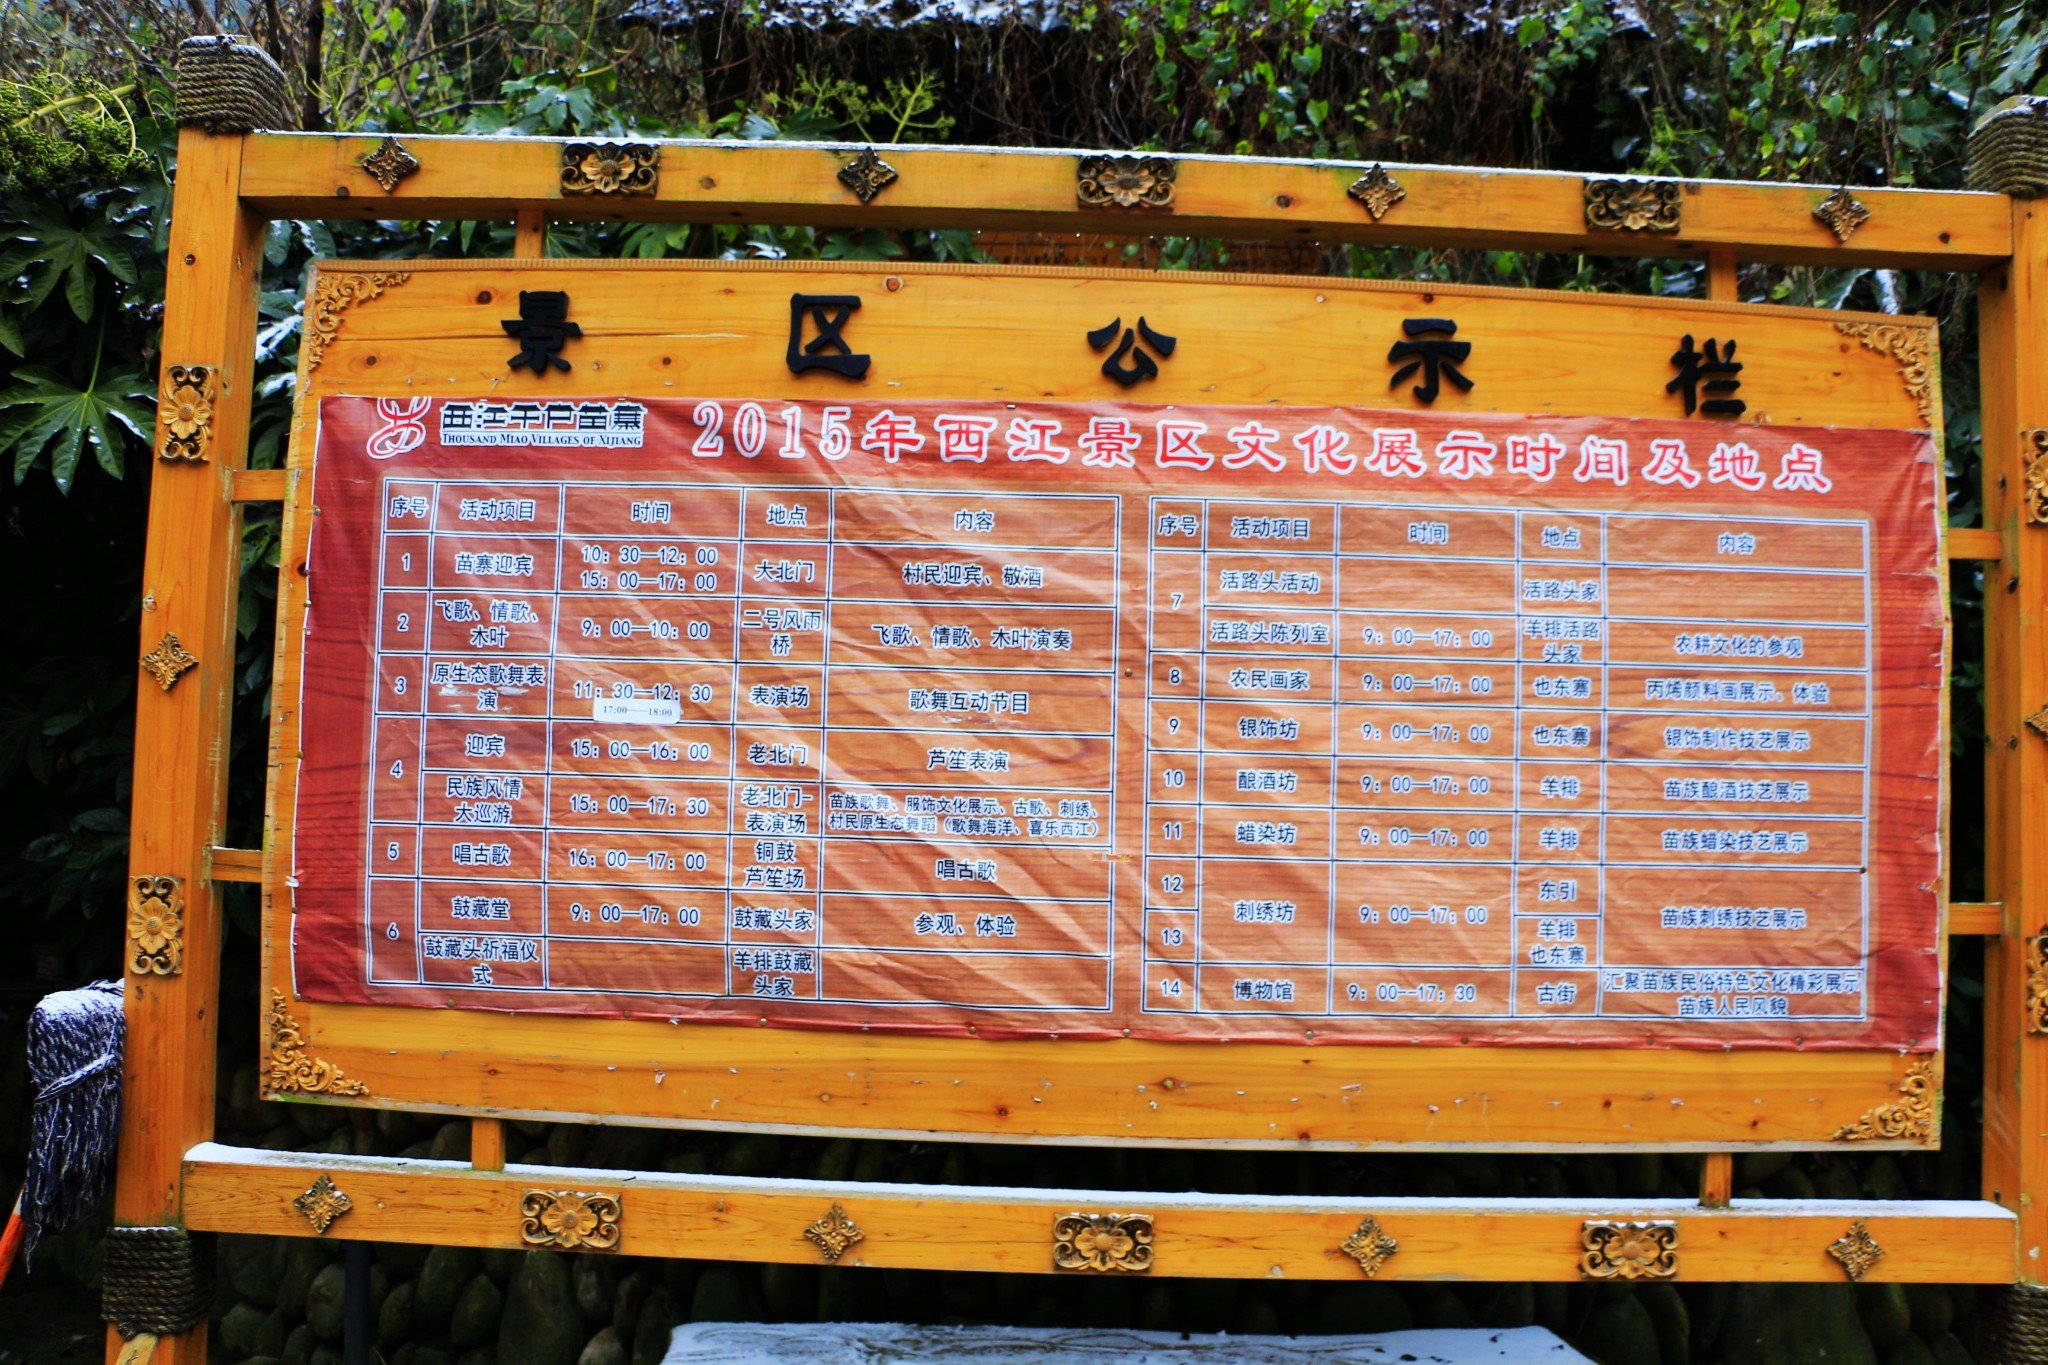 景区公示栏
西江千户苗寨
THOUSAND MIAO VILLAGES OF XIJIANG
2015年西江景区文化展示时间及地点
序号 活动项目 时间 地点 内容
1 苗寨迎宾 10:30—12:00 15:00—17:00 大北门 村民迎宾、敬酒
2 飞歌、情歌、木叶 9:00—10:00 二号风雨桥 飞歌、情歌、木叶演奏
3 原生态歌舞表演 11:30—12:30 17:00——18:00 表演场 歌舞互动节目
4 迎宾 15:00—16:00 老北门 芦笙表演
民族风情大巡游 15:00—17:30 老北门-表演场 苗族歌舞、服饰文化展示、古歌、刺绣、村民原生态舞蹈（歌舞海洋、喜乐西江）
5 唱古歌 16:00—17:00 铜鼓芦笙场 唱古歌
6 鼓藏堂 9:00—17:00 鼓藏头家 参观、体验
鼓藏头祈福仪式 羊排鼓藏头家
序号 活动项目 时间 地点 内容
7 活路头活动 活路头家
活路头陈列室 9:00—17:00 羊排活路头家 农耕文化的参观
8 农民画家 9:00—17:00 也东寨 丙烯颜料画展示、体验
9 银饰坊 9:00—17:00 也东寨 银饰制作技艺展示
10 酿酒坊 9:00—17:00 羊排 苗族酿酒技艺展示
11 蜡染坊 9:00—17:00 羊排 苗族蜡染技艺展示
12 刺绣坊 9:00—17:00 东引 苗族刺绣技艺展示
13 羊排 也东寨
14 博物馆 9:00--17:30 古街 汇聚苗族民俗特色文化精彩展示苗族人民风貌